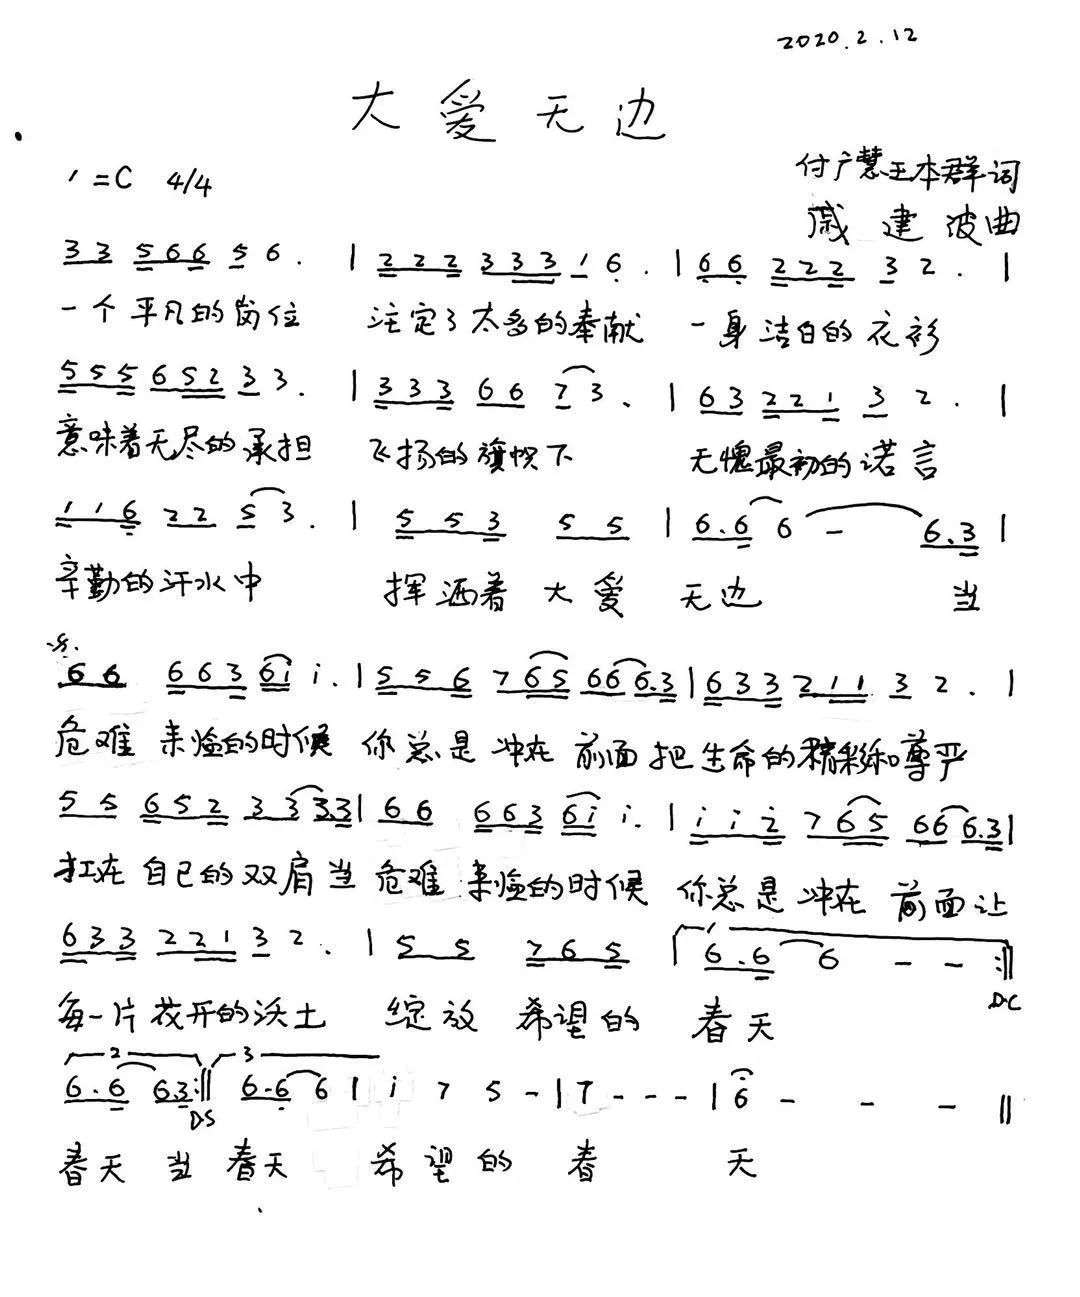 2020.2.12
大爱无边
1=C 4/4
付广慧王本群词
戚建波曲
33 566 56. | 222 333 16. | 66 222 32. |
一个平凡的岗位 注定了太多的奉献 一身洁白的衣衫
555 652 33. | 333 66 73. | 63 221 32. |
意味着无尽的承担 飞扬的旗帜下 无愧最初的诺言
116 22 53. | 553 55 | 6.6 6 - 6.3 |
辛勤的汗水中 挥洒着大爱无边 当
66 663 6i i. | 556 765 66 6.3 | 633 211 32. |
危难来临的时候 你总是冲在前面把生命的精彩和尊严
55 652 33 3.3 | 66 663 6i i. | i i 2 765 66 6.3 |
扛在自己的双肩当危难来临的时候 你总是冲在前面让
633 221 32. | 55 765 | 1 6.6 6 - - :||
D.C
每一片花开的沃土 绽放希望的 春天
2 3
6.6 63 :|| 6.6 6 | i 7 5 - | 7 - - - | 6 - - - ||
D.S
春天当春天 希望的春天